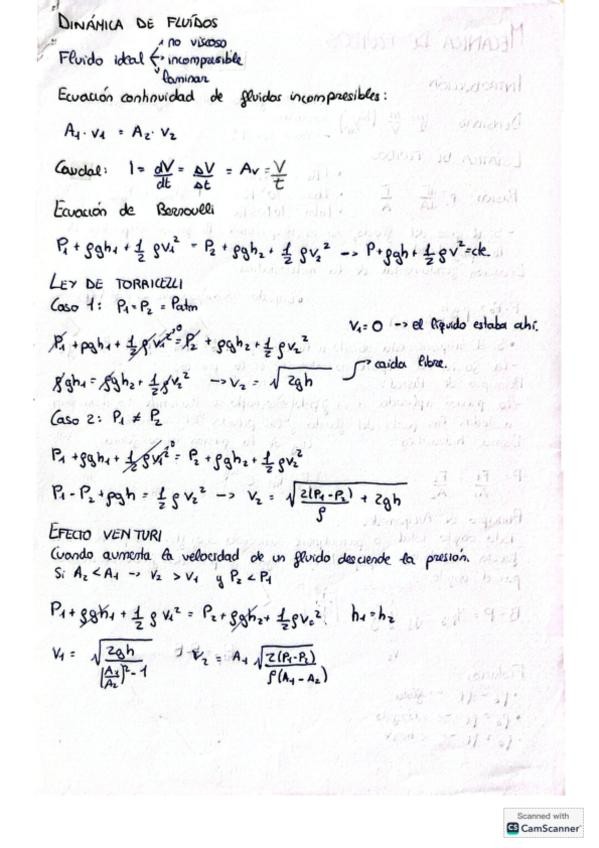 DINÁMICA DE FLUÍDOS
no viscoso
Fluido ideal incompresible
laminar
Ecuación continuidad de fluidos incompresibles:
A₁ · v₁ = A₂ · v₂
Caudal: I = dV/dt = ΔV/Δt = Av = V/t
Ecuación de Bernoulli
P₁ + ρgh₁ + 1/2 ρv₁² = P₂ + ρgh₂ + 1/2 ρv₂² → P + ρgh + 1/2 ρv² = cte.
LEY DE TORRICELLI
Caso 1: P₁ = P₂ = Patm
V₁ = 0 → el líquido estaba ahí.
P₁ + ρgh₁ + 1/2 ρv₁² ⁰ = P₂ + ρgh₂ + 1/2 ρv₂²
caída libre.
ρgh₁ = ρgh₂ + 1/2 ρv₂² → v₂ = √2gh
Caso 2: P₁ ≠ P₂
P₁ + ρgh₁ + 1/2 ρv₁² ⁰ = P₂ + ρgh₂ + 1/2 ρv₂²
P₁ - P₂ + ρgh = 1/2 ρv₂² → v₂ = √(2(P₁-P₂)/ρ + 2gh)
EFECTO VENTURI
Cuando aumenta la velocidad de un fluido desciende la presión.
Si A₂ < A₁ → v₂ > v₁ y P₂ < P₁
P₁ + ρgh₁ + 1/2 ρv₁² = P₂ + ρgh₂ + 1/2 ρv₂² h₁ = h₂
V₁ = √(2gh/((A₁/A₂)² - 1)) V₂ = A₁ √(2(P₁-P₂)/ρ(A₁-A₂))
Scanned with
CS CamScanner